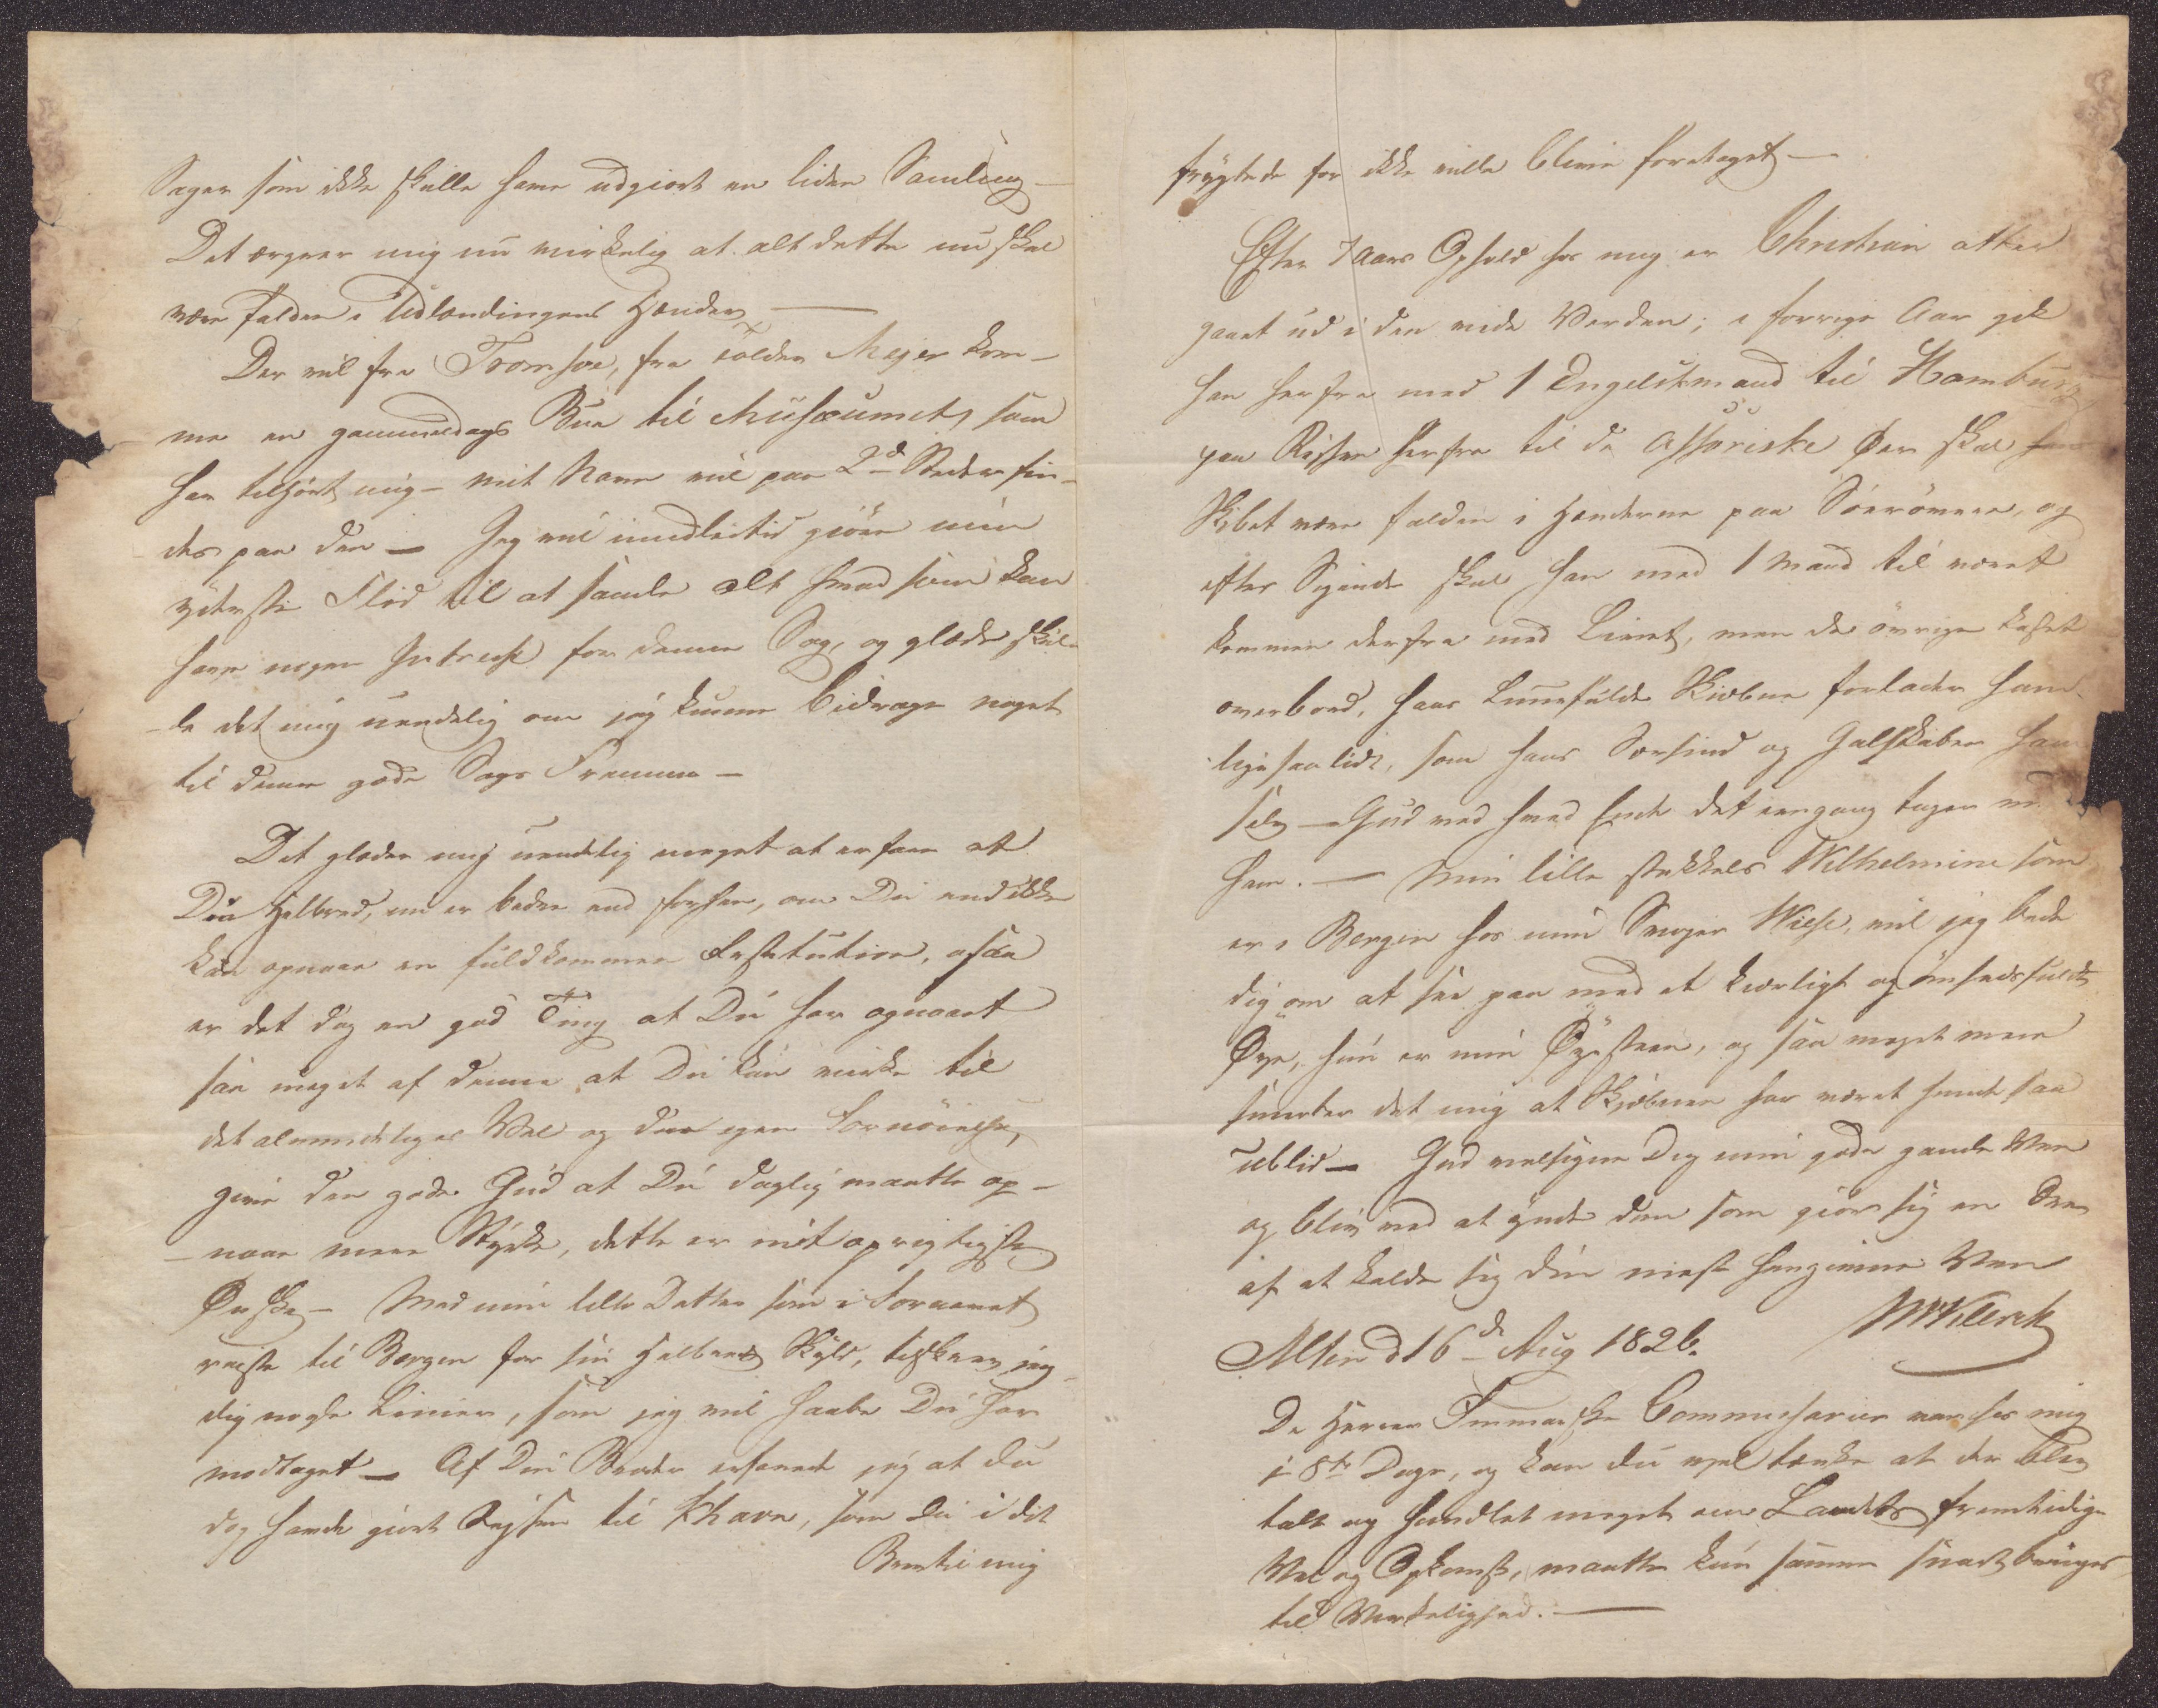 Sager som ikke skulle have udgiort en liden Samling —
Det ærgrer mig nu virkelig at alt dette nu skal
være falden i Udlændingens Hænder —
Der vil fra Tromsøe, fra Tolder Mejer kom-
me en gammeldags Bue til Musæumet, som
har tilhørt mig – mit Navn vil paa 2de Steder fin-
des paa den — Jeg vil imidlertid giöre min
yderste Flid til at samle alt hvad som kan
have nogen Intresse for denne Sag, og glæde skul-
-le det mig uendelig om jeg kunne bidrage noget
til denne gode Sags Fremme —
Det glæder mig uendelig meget at erfare at
Din Helbred, nu er bedre end forhen, om Du end ikke
kan opnaae en fuldkommen Restitution, saa
er det dog en god Ting at Du har opnaaet
saa meget af denne at Du kan virke til
det almindelige Vel og din egen Fornöielse,
give den gode Gud at Du daglig maatte op-
-naae mere Styrke, dette er mit oprigtigste
Ønske – Med min lille Datter som i Foraaret
reiste til Bergen for sin Helbreds Skyld, tilskrev jeg
dig nogle Linier, som jeg vil haabe Du har
modtaget — Af Din Broder erfarede jeg at du
dog havde giort Rejsen til Khavn, som Du i dit
Brev til mig
frygtede for ikke ville blive foretaget —
Efter 7 Aars Ophold hos mig er Christian atter
gaaet ud i den vide Verden; i forrige Aar gik
han herfra med 1 Engelskmand til Hamburg
paa Reisen herfra til de Assoriske Øer skal
Skibet være falden i Hænderne paa Söeröverne, og
efter Sigende skal han med 1 Mand til været
kommen derfra med Livet, men de övrige kastet
overbord, hans Lunefulde Skiebne forlader ham
ligesaalidt, som hans Særsind og Galskaber ham
selv — Gud veed hvad Ende det eengang tager
ham. — Min lille stakkels Wilhelmine som
er i Bergen hos min Svoger Wiese, vil jeg bede
dig om at see paa med et kiærligt og ömhedsfuldt
Øye, hun er min Øyesteen, og saa meget mere
smerter det mig at Skjebnen har været hende saa
ublid — Gud velsigne Dig min gode gamle Ven
og bliv ved at ynde den som giör sig en Ære
af at kalde sig din mest hengivne Ven
MWKlerck
Alten d 16de Aug 1826.
De Herrer Finmarkske Commissarier var hos mig
i 8te Dage, og kan du vel tænke at der blev
talt og handlet meget om Landets fremtidige
Vel og Opkomst, maatte kun samme snart bringes
til Virkelighed. —